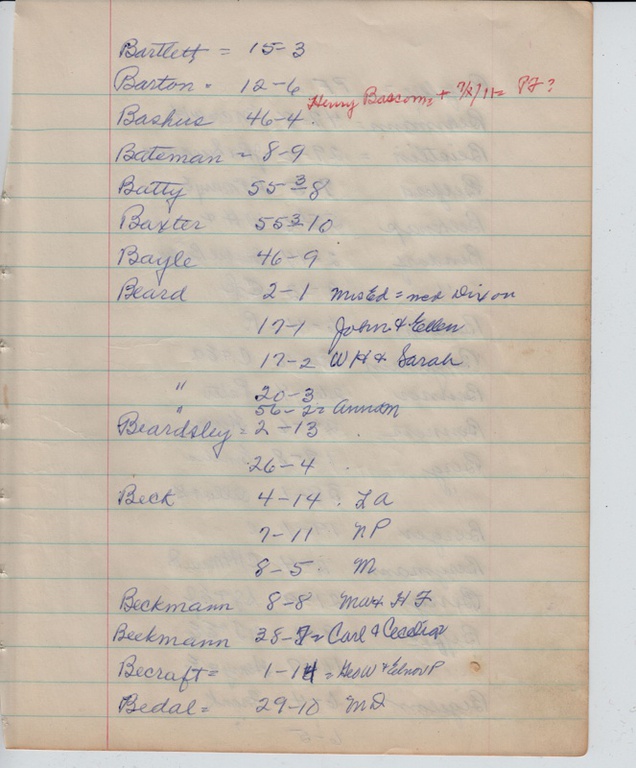 Bartlett = 15-3
Barton - 12-6
Henry Bascom + 7/2/11= PF?
Bashus 46-4.
Bateman - 8-9
Batty 55 3-8
Baxter 55 3-10
Bayle 46-9
Beard 2-1 Mrs Ed = nee Dixon
17-1 John & Ellen
17-2 W H & Sarah
" 20-3
" 56-2=
Beardsley = 2-13
26-4
Beck 4-14 .
7-11 NP
8-5. M
Beckmann 8-8 H F
Beckmann 38-7= Carl &
Becraft = 1-14 = Geo W &
Bedal = 29-10 MD